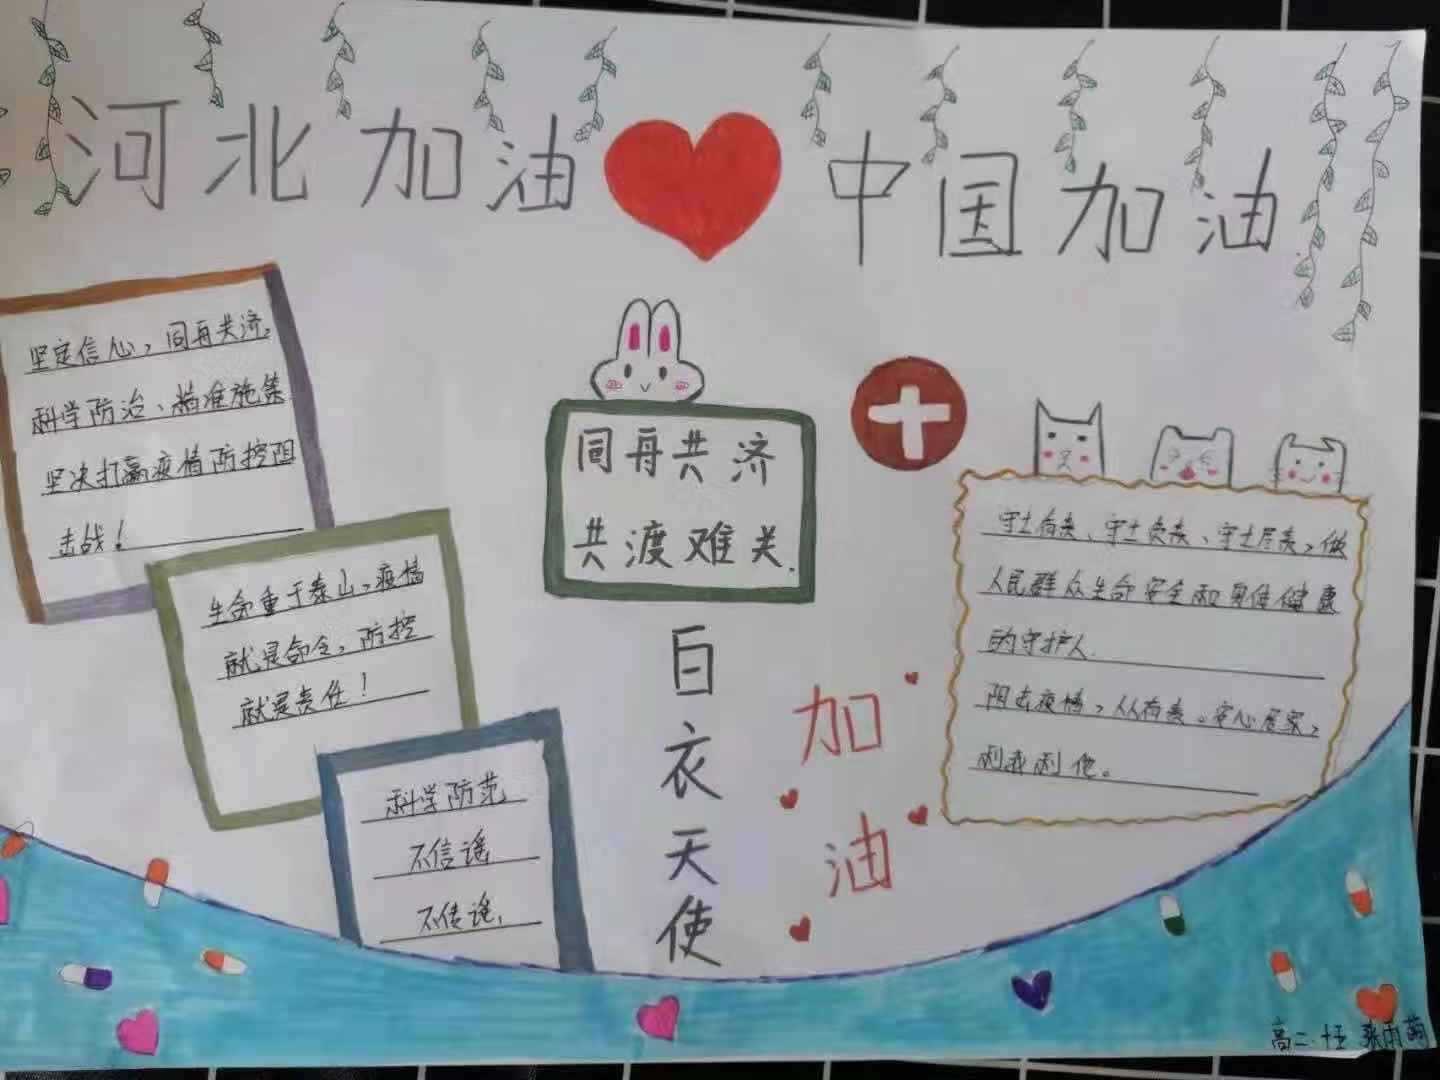 河北加油 中国加油
坚定信心，同舟共济，
科学防治、精准施策
坚决打赢疫情防控阻
击战！
生命重于泰山，疫情
就是命令，防控
就是责任！
科学防范
不信谣
不传谣，
同舟共济
共渡难关.
白衣天使
加油
守土有责、守土负责、守土尽责，做
人民群众生命安全和身体健康
的守护人.
阻击疫情，人人有责。安心居家，
利我利他。
高二·十五 张雨萌